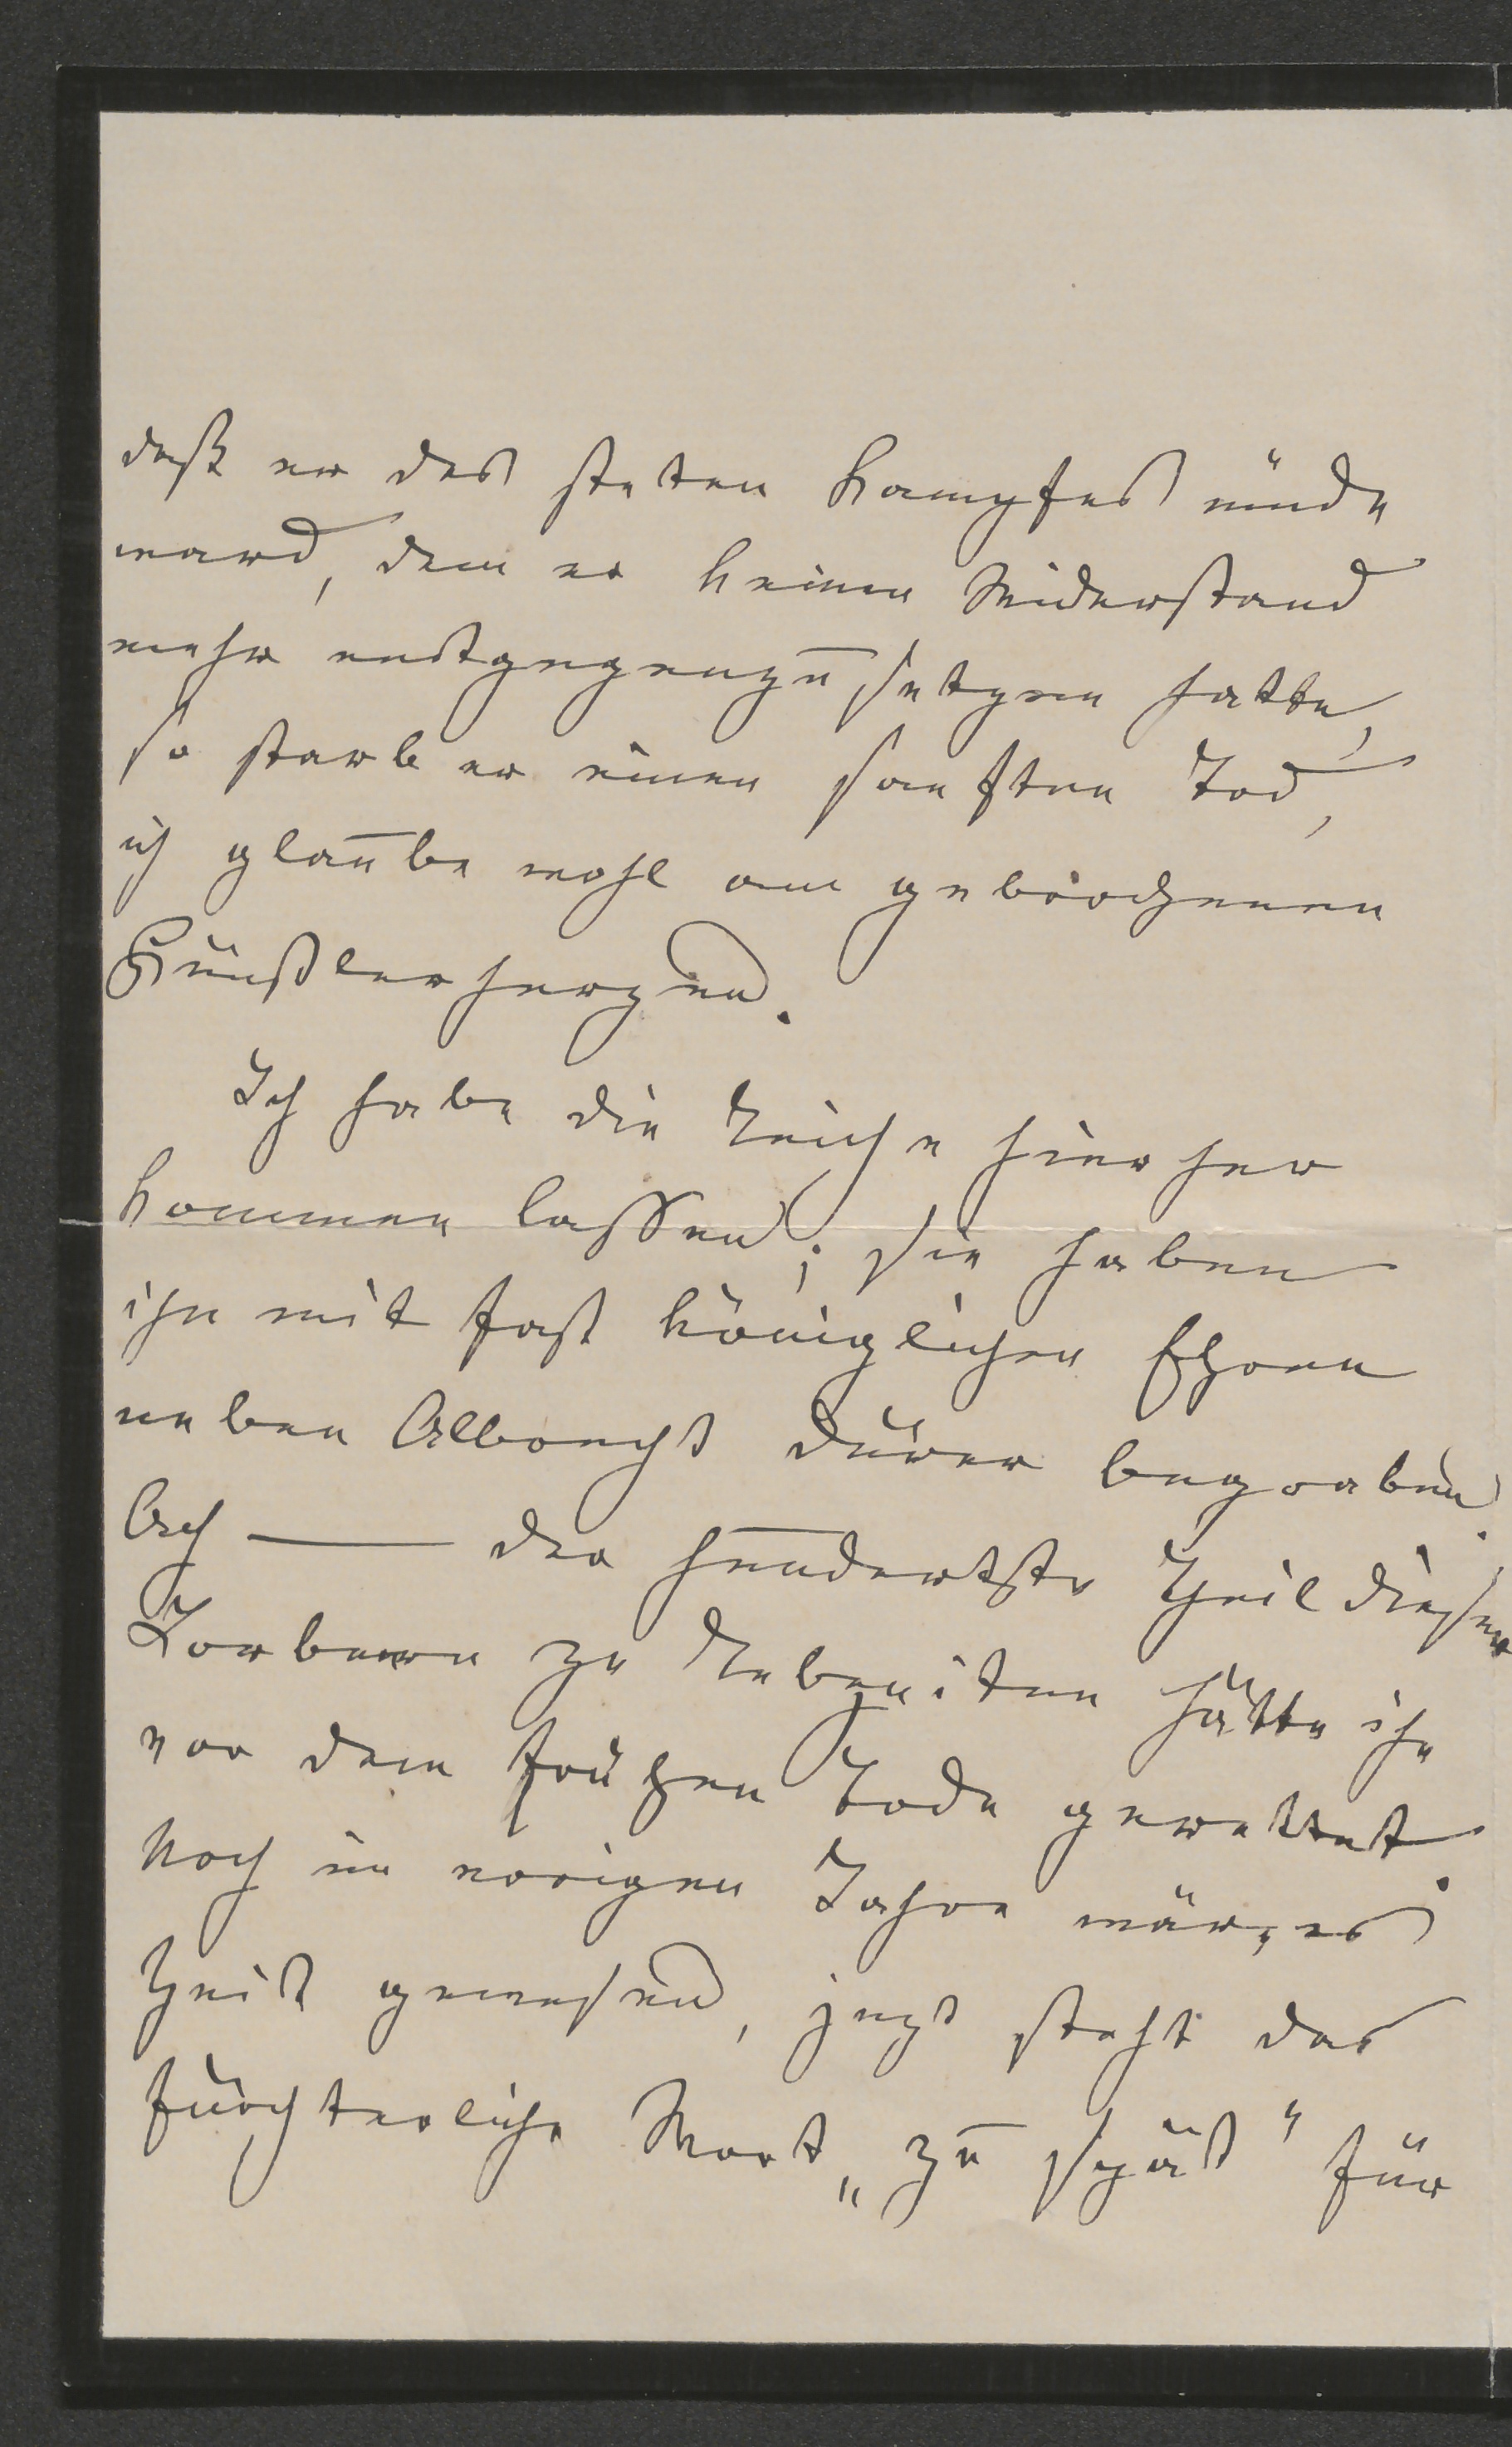 daß er des steten Kampfes müde
ward, dem er keinen Widerstand
mehr entgegenzusetzen hatte,
so starb er einen sanften Tod,
ich glaube wohl am gebrochenen
Künstlerherzen.
Ich habe die Leiche hierher
kommen lassen; sie haben
ihn mit fast königlichen Ehren
neben Albrecht Dürer begraben.
Ach — der hundertste Theil dieser
Lorbeern zu Lebzeiten hätte ihn
vor dem frühen Tode gerettet.
Noch im vorigen Jahre wär, es
Zeit gewesen, jezt steht das
fürchterliche Wort „zu spät" für